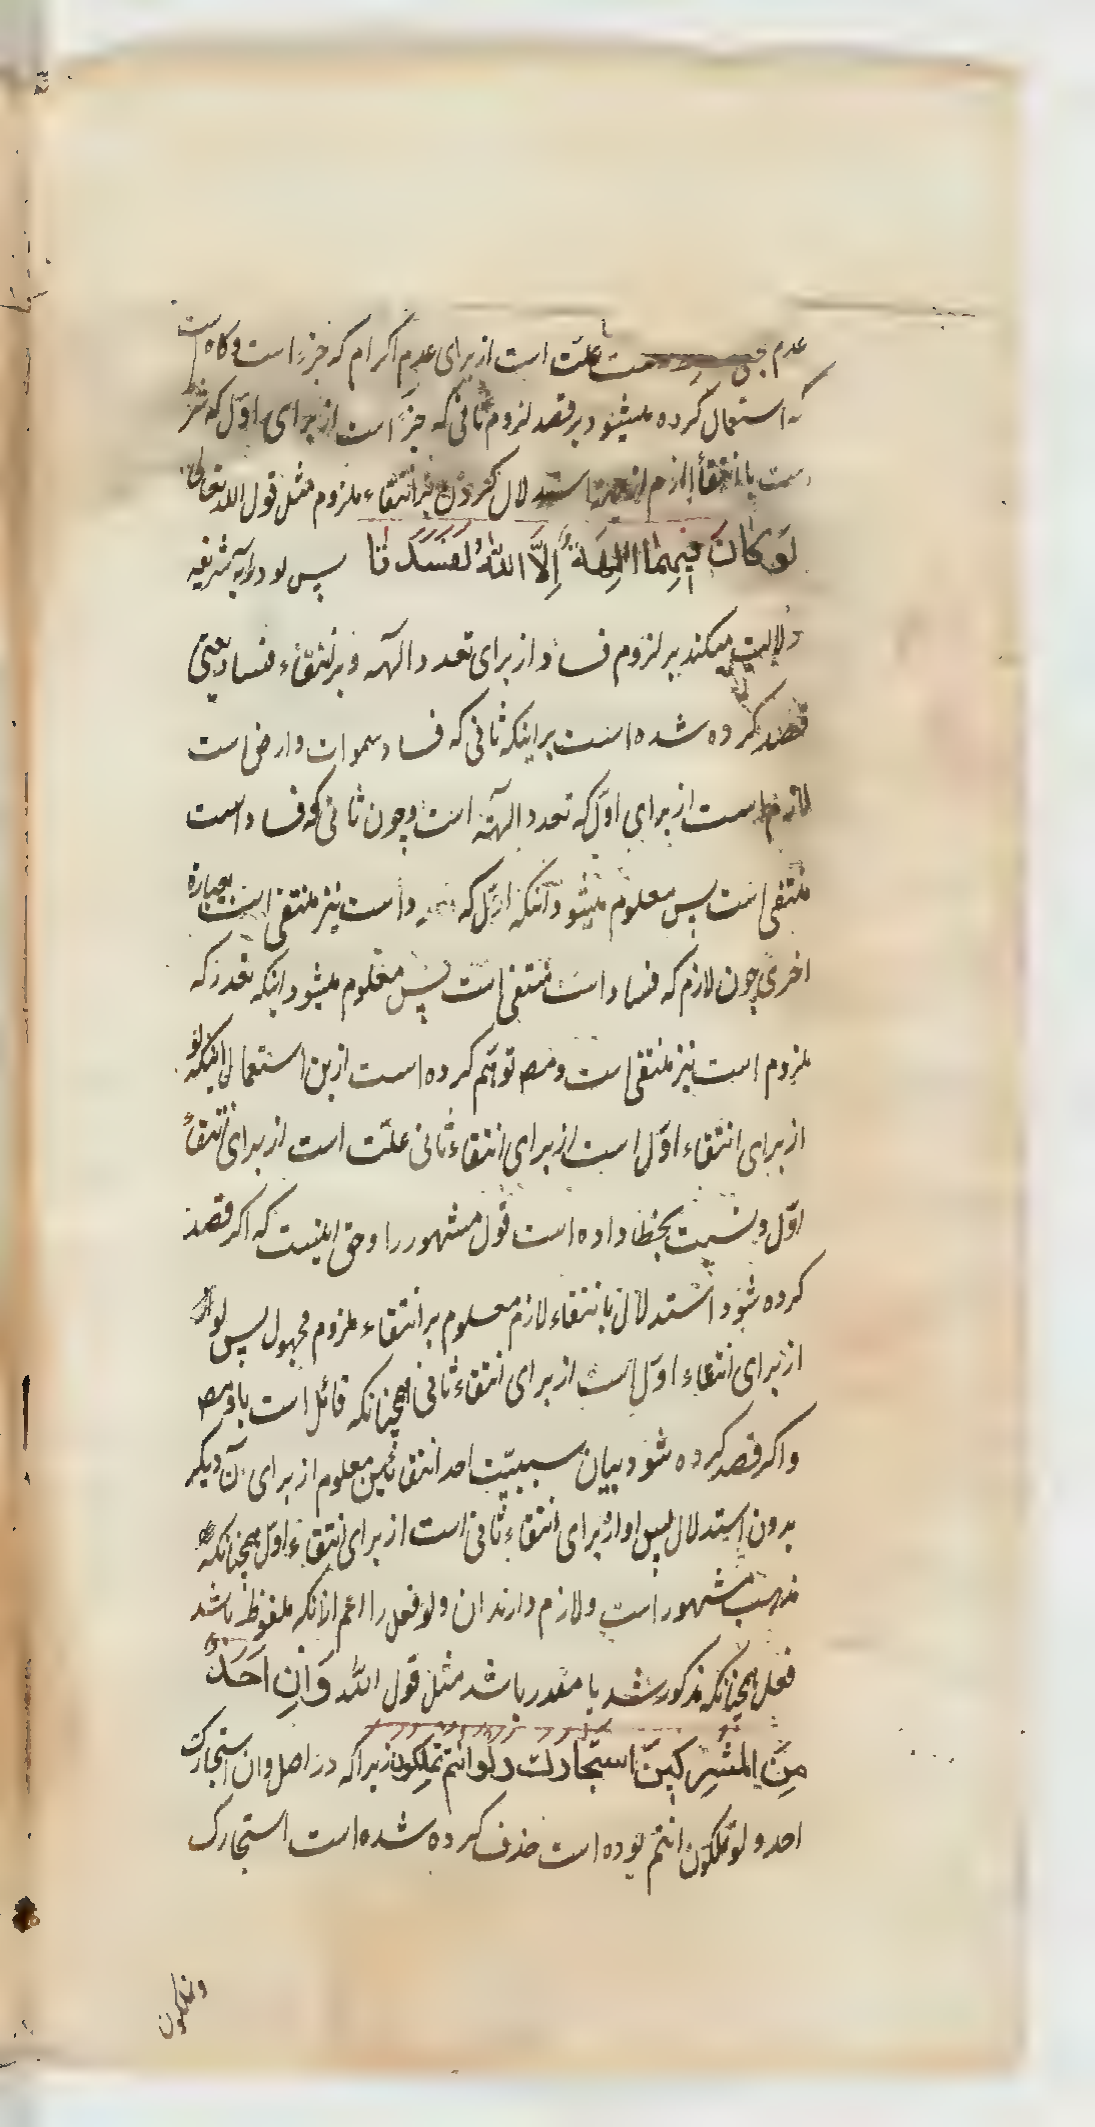 عدم علّت است از برای عدم اکرام که جزء است و کاه است
که استعمال کرده میشود بر قصد لزوم ثانی که جزء است از برای اوّل که شرط
است با انتفاء لازم استدلال کردن بر انتفاء ملزوم مثل قول الله تعالی
لَوْ کانَ فِیهِمٰا آلِهَةٌ إِلَّا اللّٰهُ لَفَسَدَتٰا پس لو در آیه شریفه
دلالت میکند بر لزوم فساد از برای تعدد الهه و بر انتفاء فساد یعنی
قصد کرده شده است بر اینکه ثانی که فساد سموات و ارض است
لازم است از برای اوّل که تعدد الهه است و چون ثانی که فساد است
منتفی است پس معلوم میشود آنکه اوّل که است نیز منتفی است بعبارة
اخری چون لازم که فساد است منتفی است پس معلوم میشود اینکه تعدد که
ملزوم است نیز منتفی است و مصـ توهّم کرده است ازین استعمال اینکه لو
از برای انتفاء اوّل است از برای انتفاء ثانی علّت است از برای انتفاء
اوّل و نسبت بخطا داده است قول مشهور را و حق اینست که اکر قصد
کرده شود استدلال بانتفاء لازم معلوم بر انتفاء ملزوم مجهول پس لو
از برای انتفاء اوّل است از برای انتفاء ثانی همچنانکه قائل است باو مصـ
و اکر قصد کرده شود بیان سببیّت احد انتفائین معلوم از برای آن دیکر
بدون استدلال پس او از برای انتفاء ثانی است از برای انتفاء اوّل همچنانکه
مذهب مشهور است و لازم دارند ان و لو فعل را اعم از انکه ملفوظ باشد
فعل همچنانکه مذکور شد یا مقدر باشد مثل قول الله وَاِنْ اَحَدٌ
مِنَ المُشْرِکینَ اسْتَجارَکَ و لو انتم تملکون زیرا که در اصل و ان استجارک
احد و لو تملکون انتم بوده است حذف کرده شده است استجارک
و تملکون